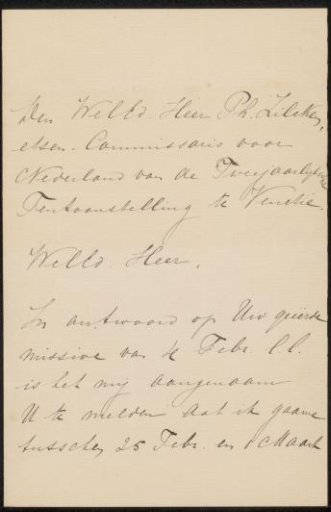 Den WelEd. Heer Ph. Zilcken,
etser. Commissaris voor
Nederland van de Tweejaarlijksche
Tentoonstelling te Venetië.
WelEd. Heer,
In antwoord op Uw geëerde
missive van 4 Febr. l.l.
is het mij aangenaam
U te melden dat ik gaarne
tusschen 25 Febr. en 1e Maart